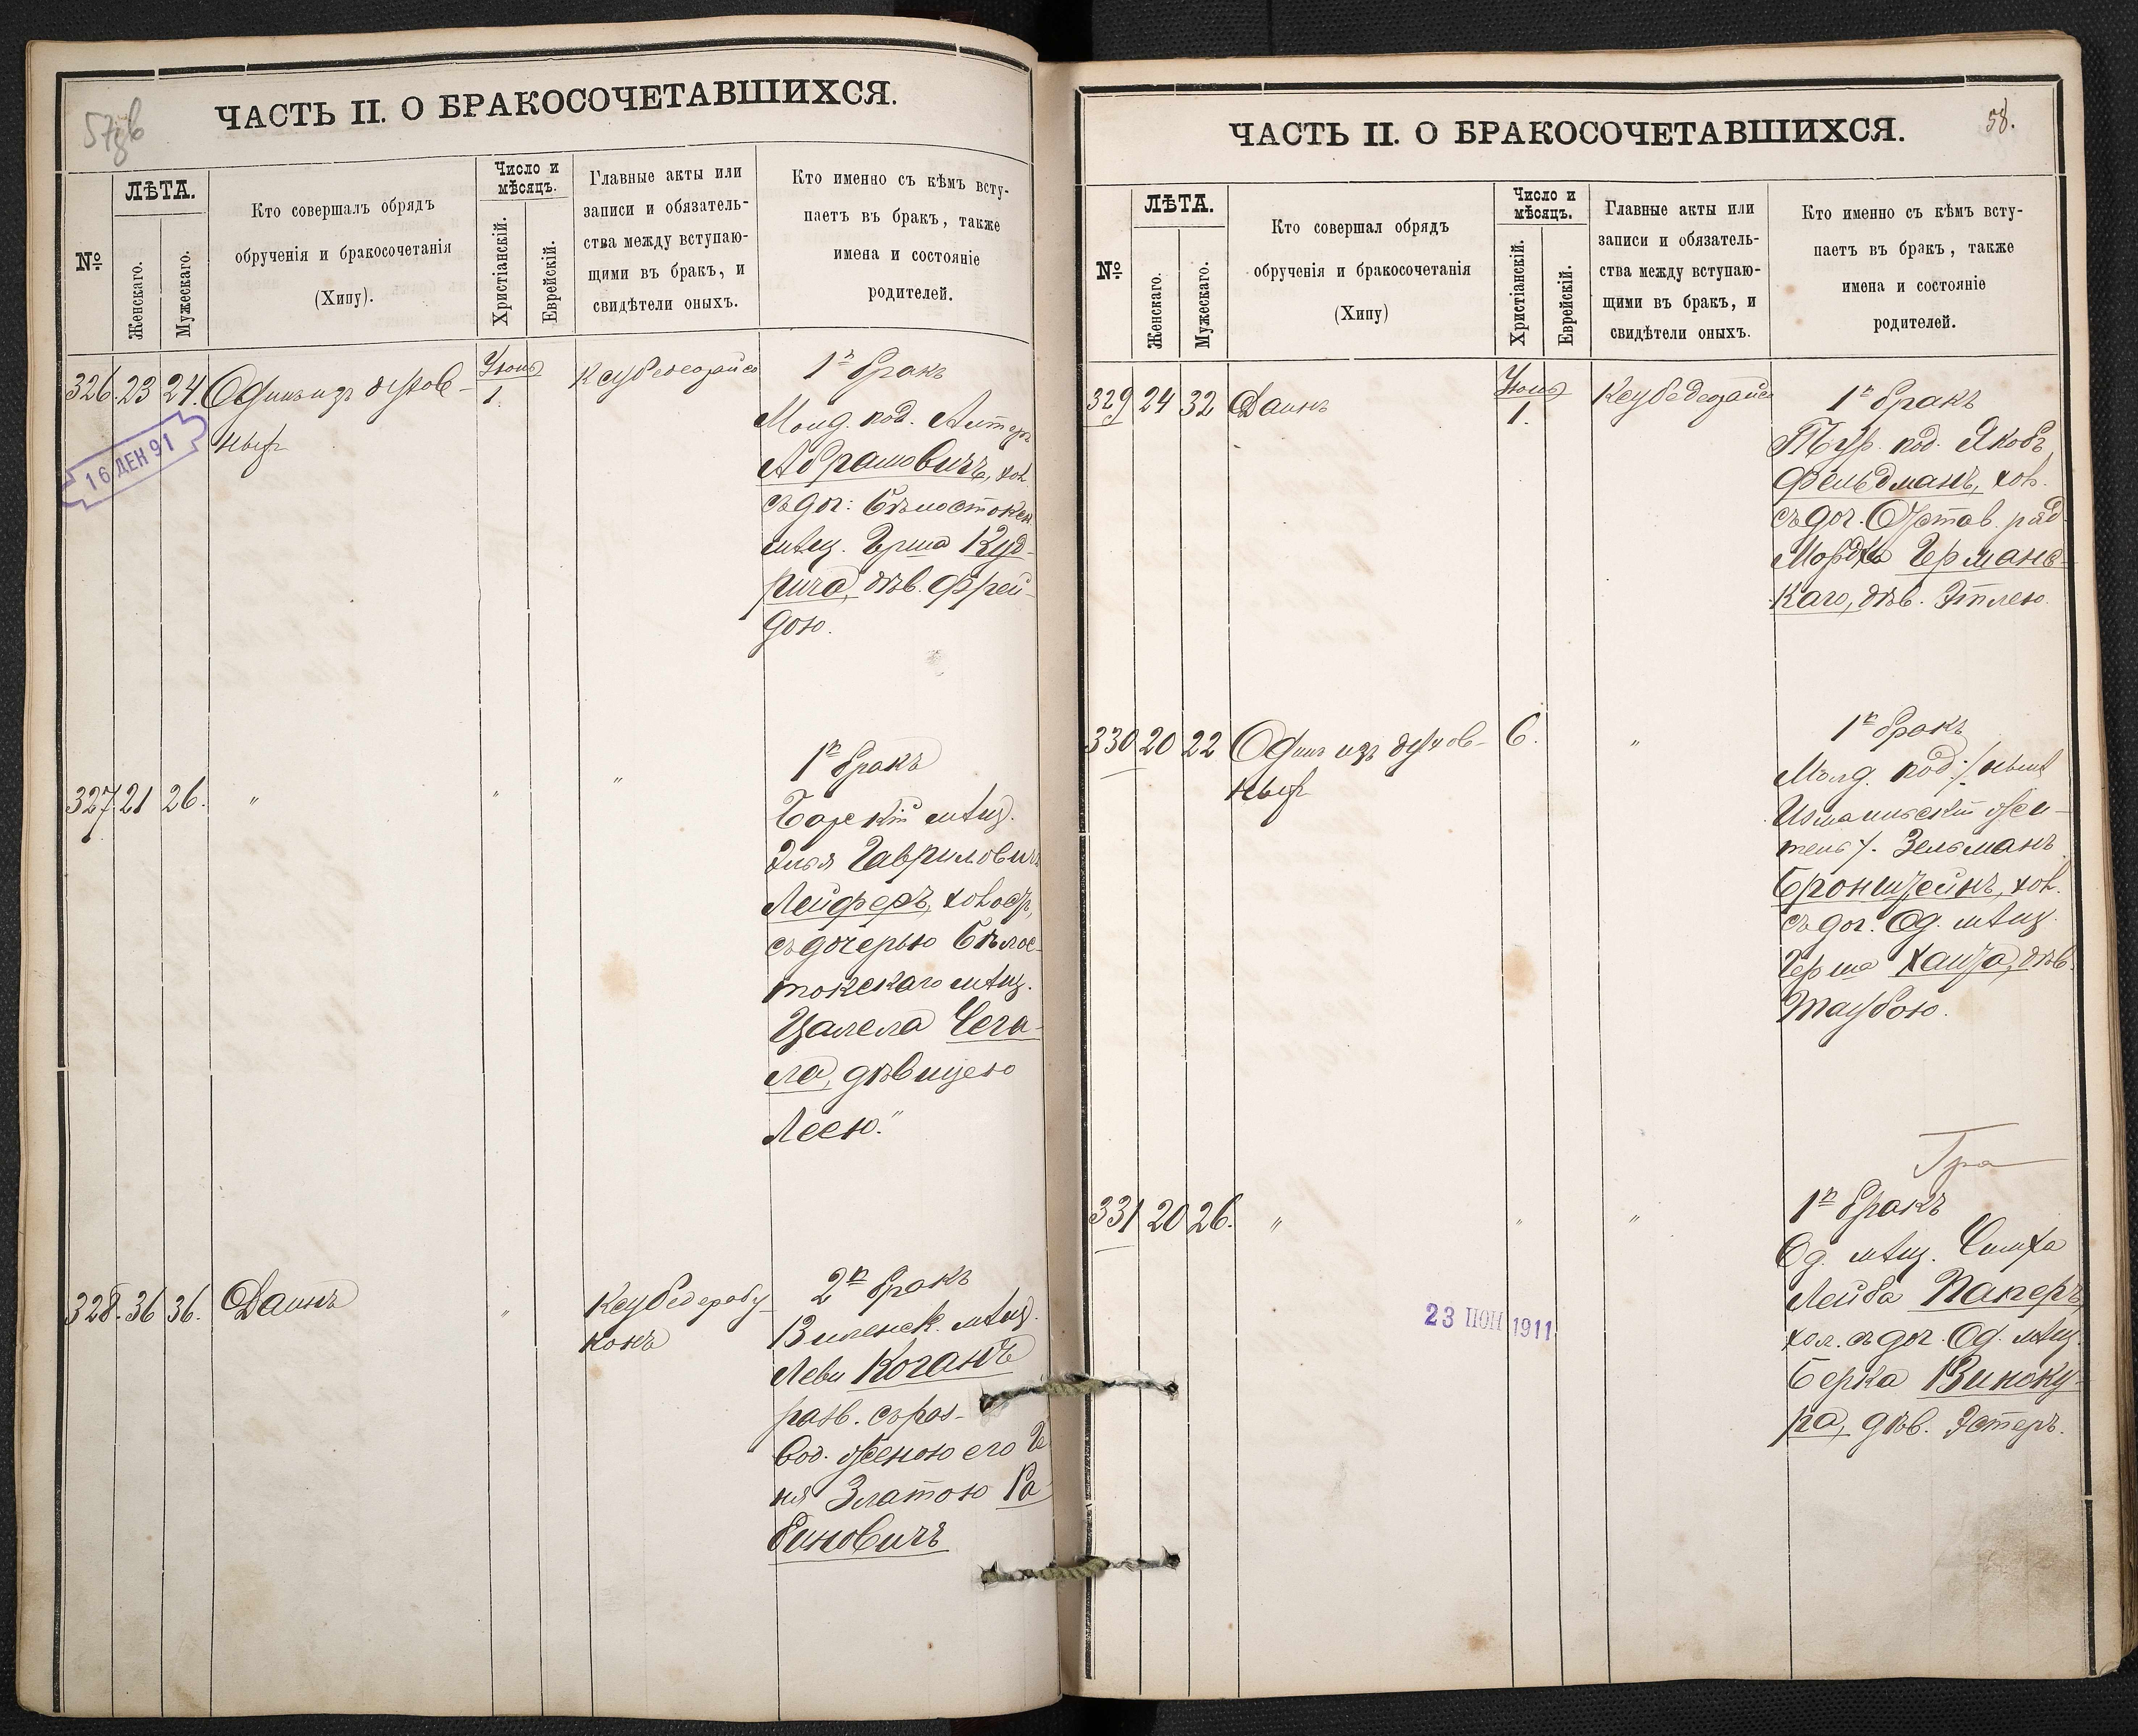 57
ЧАСТЬ II. О БРАКОСОЧЕТАВШИХСЯ.
№
ЛѢТА.
Женскаго.
Мужескаго.
Кто совершалъ обрядъ
обрученія и бракосочетанія
(Хипу).
Число и
мѣсяцъ.
Христіанскій.
Еврейскій.
Главные акты или
записи и обязатель-
ства между вступаю-
щими въ бракъ, и
свидѣтели оныхъ.
Кто именно съ кѣмъ всту-
паетъ въ бракъ, также
имена и состояніе
родителей.
326. 23 24. Одинъ изъ духов-
ныхъ
Іюнь
1.
16 ДЕН 91
1й бракъ
Молд. под. Алтеръ
Абрамовичъ, хол.
съ доч: Бѣлостокск.
мѣщ. Герша Куд-
рича, дѣв. Фрей-
дою.
327. 21 26. " " "
1й бракъ
Барскій мѣщ.
Элья Гавриловичъ
Лейферъ, холост,
съ дочерью Бѣлос-
токскаго мѣщ.
Цалела Сега-
ла, дѣвицею
Леею."
328. 36 36. Даинъ "
2й бракъ
Виленск. мѣщ.
Леви Коганъ
разв. съ раз-
вод. женою его Ге
ня Златою Ра
биновичъ
58.
ЧАСТЬ II. О БРАКОСОЧЕТАВШИХСЯ.
№
ЛѢТА.
Женскаго.
Мужескаго.
Кто совершал обрядъ
обрученія и бракосочетанія
(Хипу)
Число и
мѣсяцъ.
Христіанскій.
Еврейскій.
Главные акты или
записи и обязатель-
ства между вступаю-
щими въ бракъ, и
свидѣтели оныхъ.
Кто именно съ кѣмъ всту-
паетъ въ бракъ, также
имена и состояніе
родителей.
329 24 32 Даинъ
Іюнь
1.
1й бракъ
Тур. под. Якобъ
Фельдманъ, хол.
съ доч. Отстав. ряд.
Мордка Германс-
каго, дѣв. Этлею.
330 20 22 Одинъ изъ духов-
ныхъ
6. "
1й бракъ
Молд. под: /нынѣ
Измаильскій жи-
тель/. Зельманъ
Бронштейнъ, хол.
съ доч. Од. мѣщ.
Герша Хаита, дѣв.
Таубою.
331 20 26. " " "
1й бракъ
Од. мѣщ. Симха
Лейба Паперъ,
хол. съ доч. Од. мѣщ.
Берка Виноку-
ра, дѣв. Эстеръ.
23 ІЮН 1911